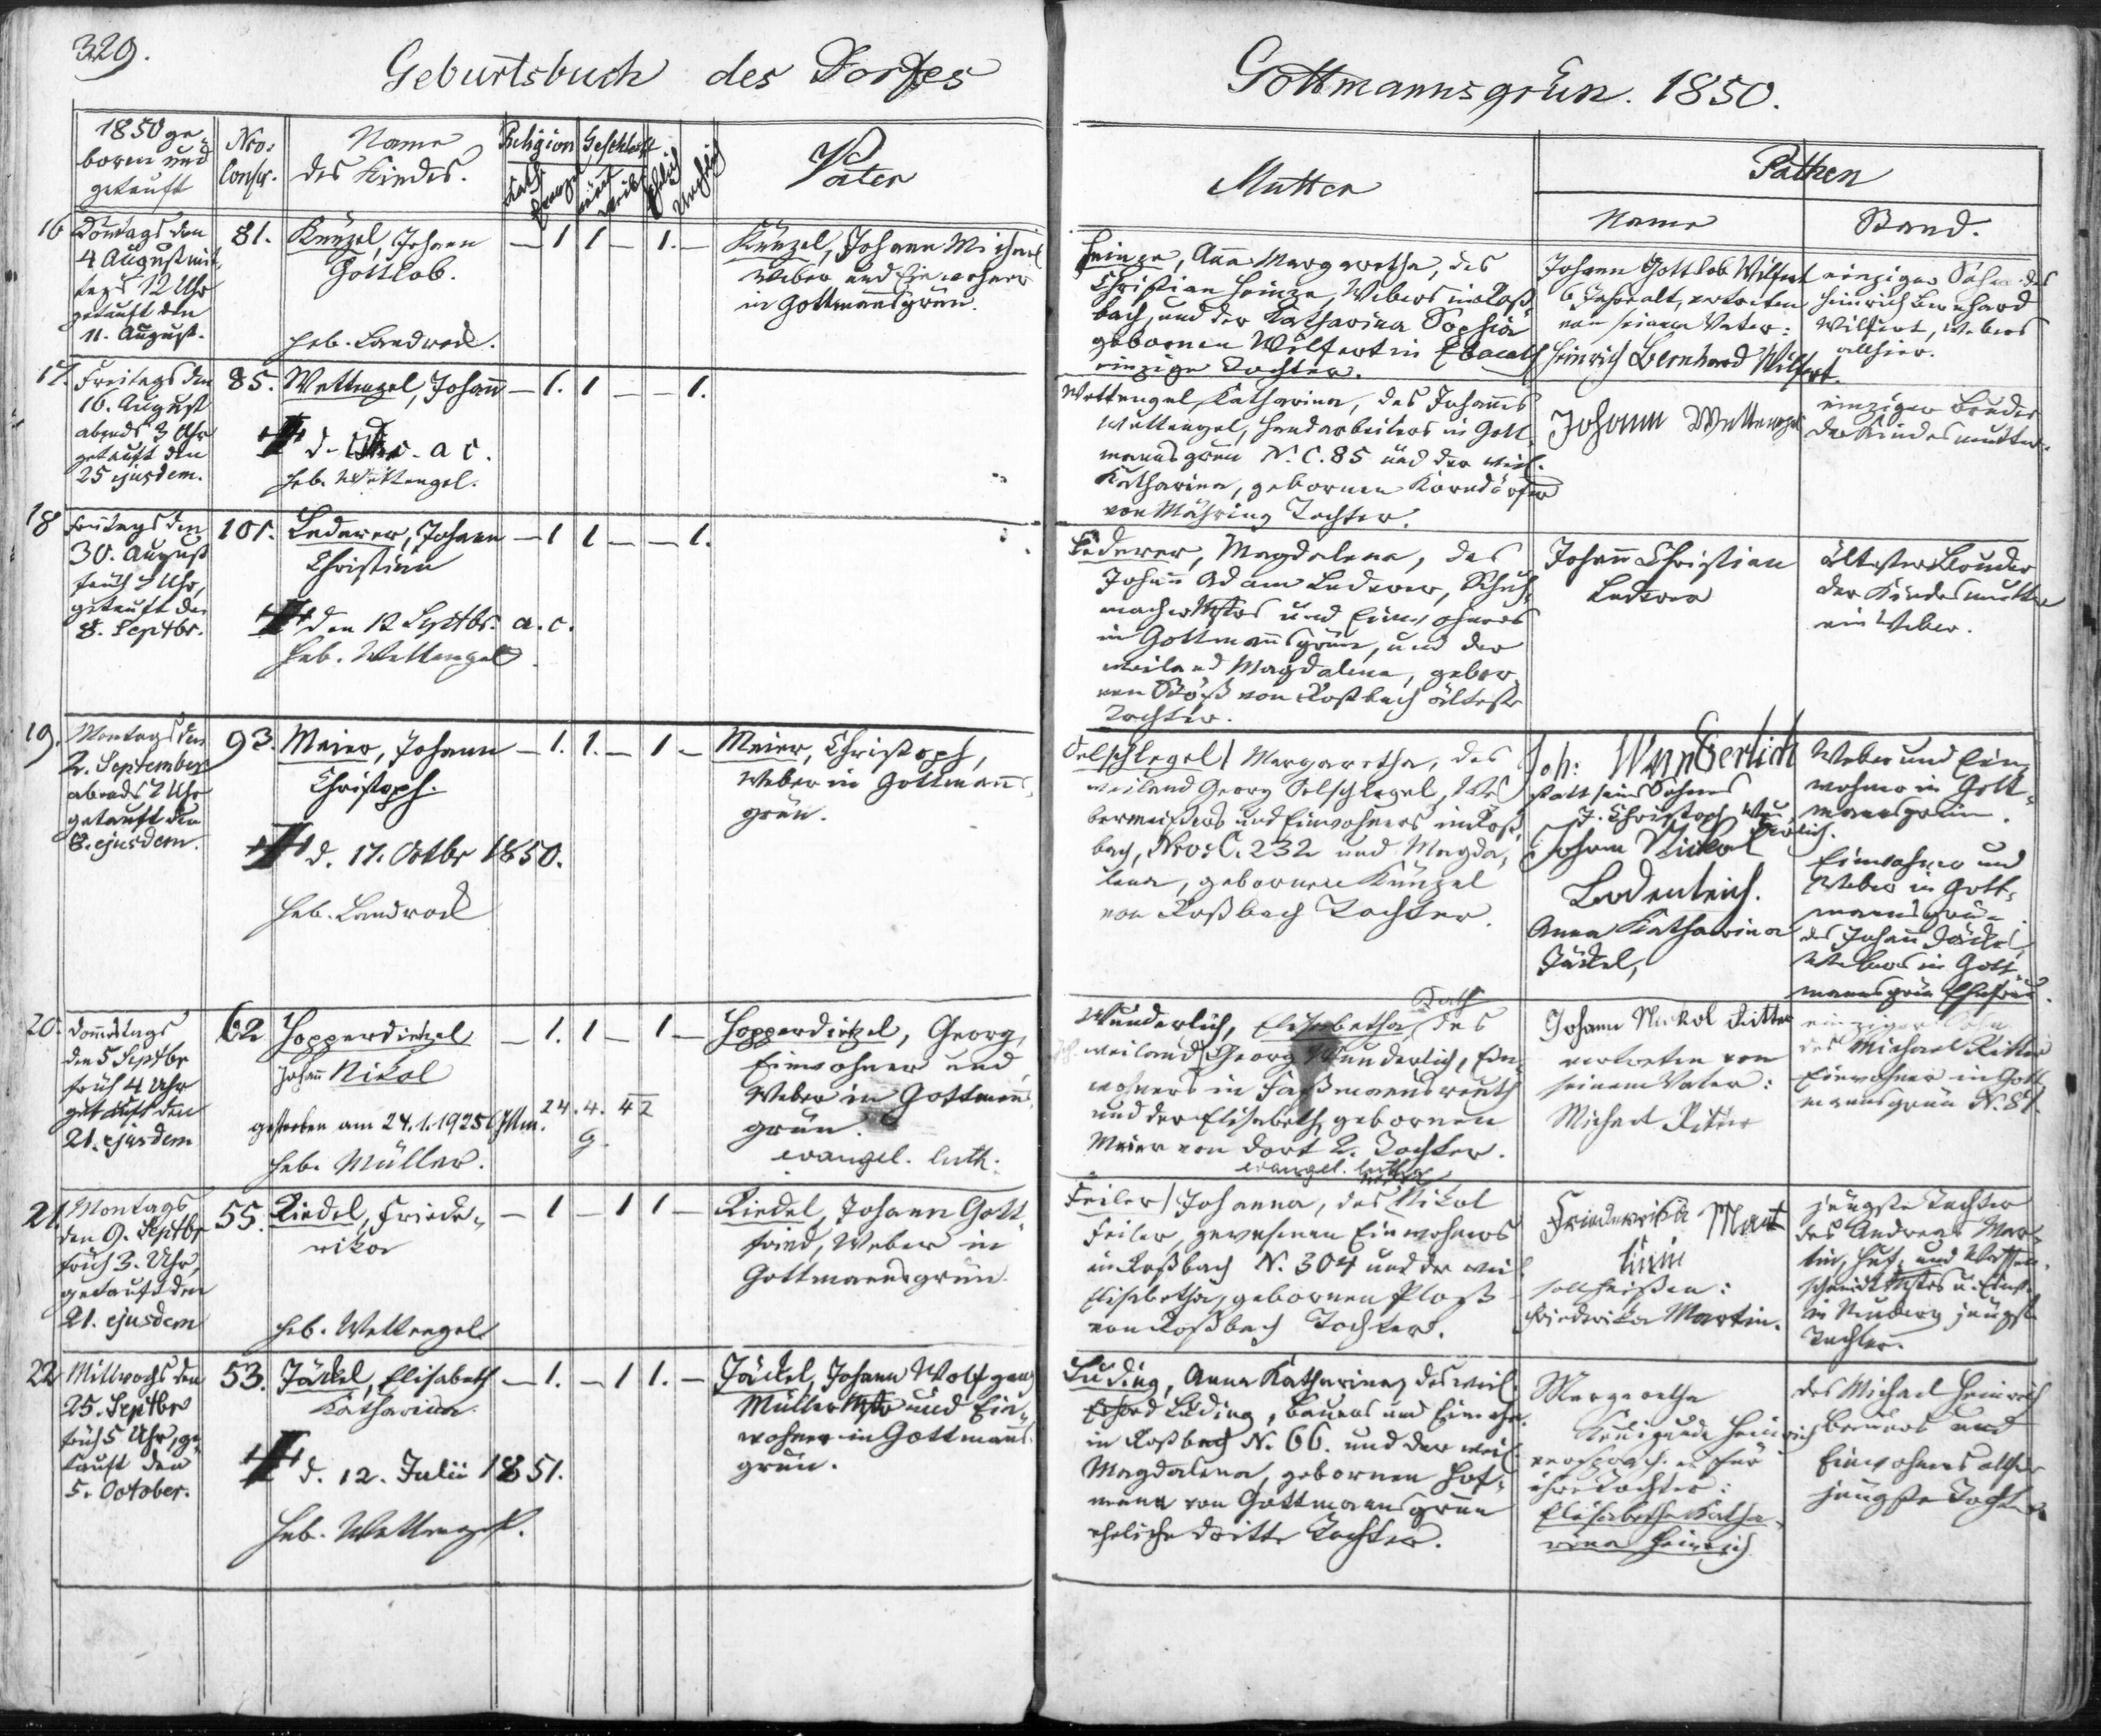 329.
Geburtsbuch des Dorfes
Gottmannsgrün. 1850.
1850 ge-
boren und
getauft
Nro:
Conscr.
Name
des Kindes.
Religion
Kath.
Evangel.
Geschlecht
männl.
weibl.
Ehelich
Unehelich
Vater
Mutter
Pathen
Name
Stand.
16
Sonntags den
4 August mit-
tags 12 Uhr
getauft den
11. August.
81.
Künzel, Johann
Gottlob.
Heb. Landrock.
— 1 1 — 1. —
Künzel, Johann Michael
Weber und Einwohner
in Gottmannsgrün.
Heinze, Anna Margaretha, des
Christian Heinze, Webers in Roß-
bach, und der Katharina Sophia
gebornen Wilfert in
einzige Tochter.
Johann Gottlob Wilfert
6 Jahre alt, vertreten
von seinem Vater:
Heinrich Bernhard Wilfert.
einziger Sohn des
Heinrich Bernhard
Wilfert, Webers
allhier.
17.
Freitags den
16. August
abends 3 Uhr
getauft den
25 ejusdem.
85.
Wettengel, Johann
d. a. c.
Heb. Wettengel.
— 1. 1 — — 1.
Wettengel, Katharina, des Johannes
Wettengel, Handarbeiters in Gott-
mannsgrün N. C. 85 und der weil.
Katharina, gebornen Korndörfer
von Mähring Tochter.
Johann Wettengel
einziger Bruder
der Kindesmutter.
18
Freitags den
30. August
früh 7 Uhr,
getauft den
8. Septbr.
101.
Lederer, Johann
Christian
den 12 Septbr. a. c.
Heb. Wettengel
— 1 1 — — 1.
Lederer, Magdalena, des
Johann Adam Lederer, Schuh-
machermstrs und Einwohners
in Gottmannsgrün, und der
weiland Magdalena, gebor-
nen Stöß von Roßbach älteste
Tochter.
Johann Christian
Lederer
ältester Bruder
der Kindesmutter
ein Weber.
19.
Montags den
2. September
abends 7 Uhr
getauft den
8. ejusdem.
93.
Meier, Johann
Christoph.
d. 17. Octbr 1850.
Heb. Landrock
— 1. 1. — 1 —
Meier, Christoph,
Weber in Gottmanns-
grün.
Oelschlegel, Margaretha, des
weiland Georg Oelschlegel, We-
bermeisters und Einwohners in Roß-
bach, Nro: C. 232 und Magda-
lena, gebornen Künzel
von Roßbach Tochter.
Joh: Wunderlich
statt seines Sohnes
J. Christoph Wun-
derlich.
Johann Nickol
Bodenteich.
Anna Katharina
Jäckel,
Weber und Ein-
wohner in Gott-
mannsgrün.
Einwohner und
Weber in Gott-
mannsgrün
des Johann Jäckel,
Webers in Gott-
mannsgrün Ehefrau.
20.
Donnerstags
den 5 Septbr
früh 4 Uhr
getauft den
21. ejusdem
62
Hopperdietzel
Johann Nikol
gestorben am 24.1.1925
24. 4. 42
g.
Heb. Müller.
— 1. 1 — 1 —
Hopperdietzel, Georg,
Einwohner und
Weber in Gottmanns-
grün.
evangel. luth.
Kath
Wunderlich, Elisabetha, des
weiland Georg Wunderlich, Ein-
wohners in Faßmannsreuth
und der Elisabeth, gebornen
Meier von dort 2. Tochter.
evangel. luther
Johann Nickol Ritter
vertreten von
seinem Vater:
Michael Ritter
einziger Sohn
des Michael Ritter
Einwohner in Gott-
mannsgrün N. 87.
21.
Montags
den 9. Septbr
früh 3. Uhr,
getauft den
21. ejusdem
55.
Riedel, Friede-
rika
Heb. Wettengel
— 1 — 1 1 —
Riedel, Johann Gott-
fried, Weber in
Gottmannsgrün.
Feiler, Johanna, des Nikol
Feiler, gewesenen Einwohners
in Roßbach N. 304 und der weil.
Elisabetha, gebornen Ploß
von Roßbach Tochter.
Friederika Mart
linn
soll heißen:
Friederika Martin.
jüngste Tochter
des Andreas Mar-
tin, Huf- und Waffen-
schmidt Mstrs u. Einw.
in Neuberg jüngste
Tochter.
22
Mittwochs den
25. Septbr
früh 5 Uhr, ge-
tauft den
5. October.
53.
Jäckel, Elisabeth
Katharina.
d. 12. Julii 1851.
Heb. Wettengel.
— 1. — 1 1. —
Jäckel, Johann Wolfgang
Müller Mstr und Ein-
wohner in Gottmanns-
grün.
Luding, Anna Katharina, des weil.
Erhard Luding, Bauers und Einwohn.
in Roßbach N. 66. und der weil.
Magdalena, gebornen Hof-
mann von Gottmannsgrün
eheliche dritte Tochter.
Margaretha
Kunigunda Heinrich
für
ihre Tochter:
Elisabetha Katha-
rina Heinrich
des Michael Heinrich
Bauers und
Einwohners allhier
jüngste Tochter.